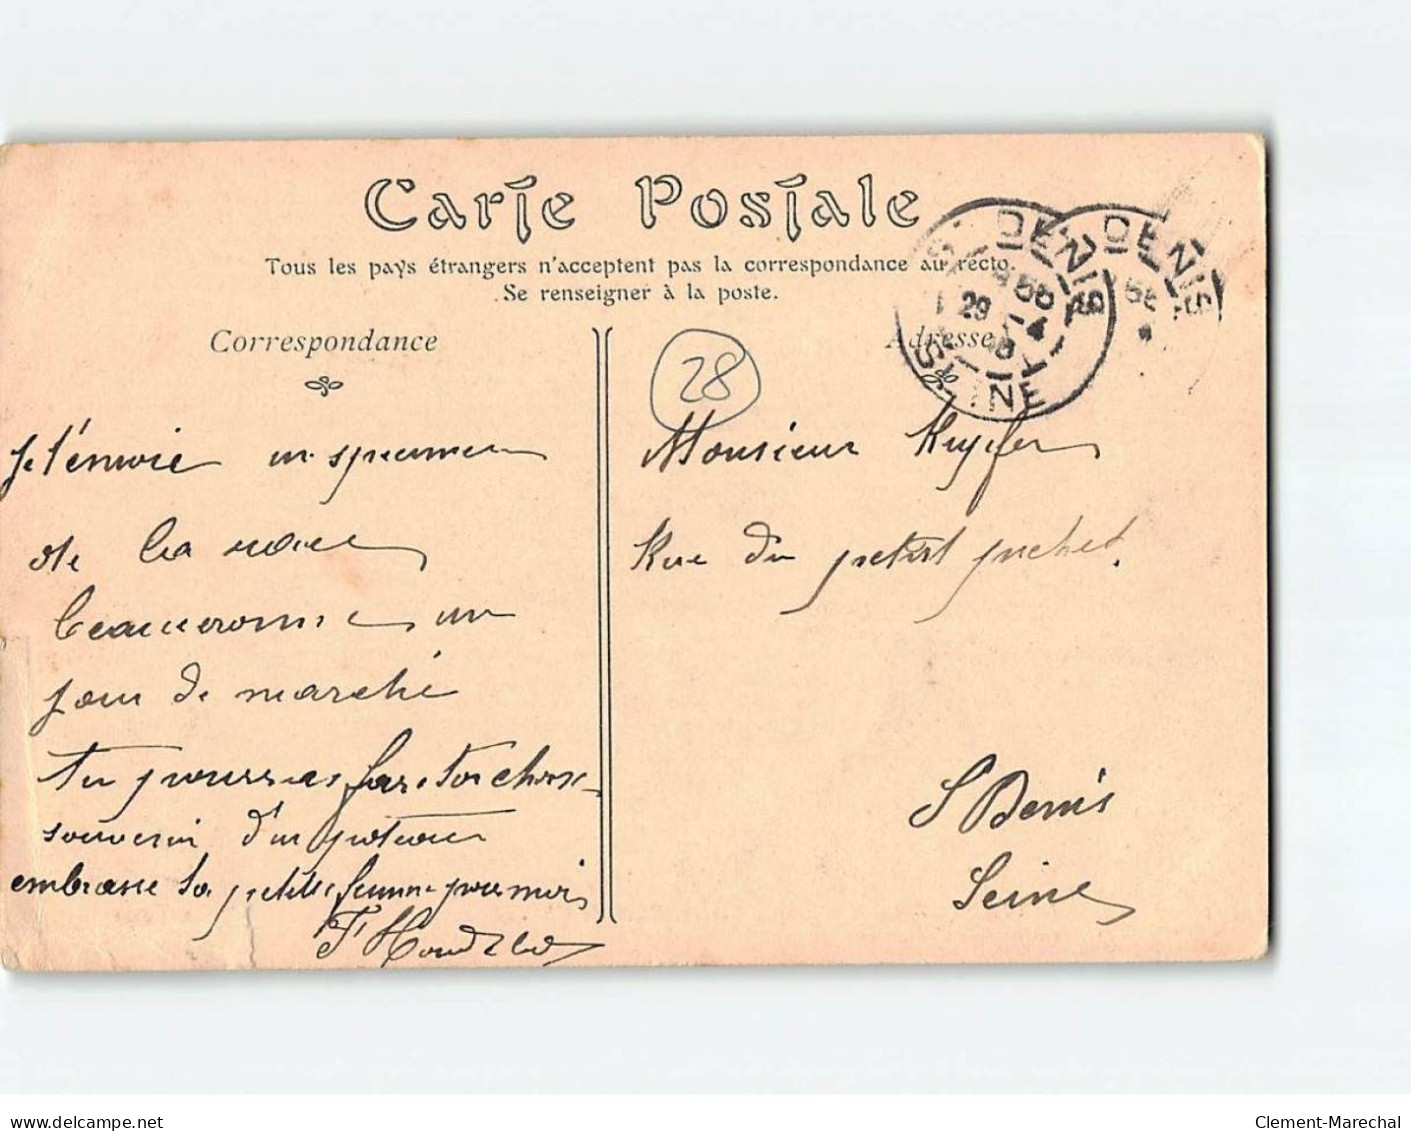 Carte Postale
Tous les pays étrangers n'acceptent pas la correspondance au recto.
Se renseigner à la poste.
Correspondance
Adresse
28
St DENIS
DENIS
29 - 4
SEINE
Je t'envoie un specimen
de la race
beauceronne un
jour de marché
Tu pourras
souvenir d'un
embrasse ta petite femme pour moi
Monsieur Kupfer
Rue du petit puchet.
St Denis
Seine
delcampe.net
Clement-Marechal